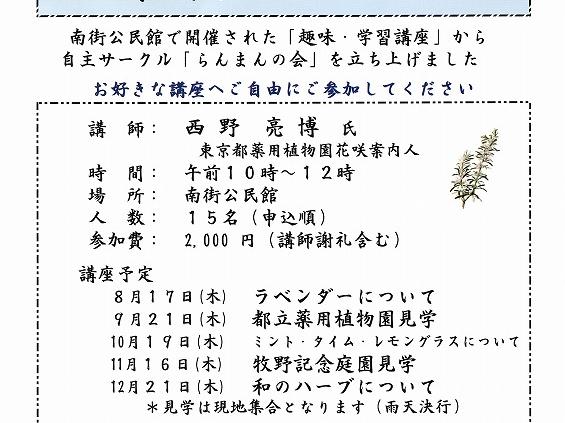 南街公民館で開催された「趣味・学習講座」から
自主サークル「らんまんの会」を立ち上げました
お好きな講座へご自由にご参加してください
講　師：　西野　亮博 氏
東京都薬用植物園花咲案内人
時　間：　午前１０時～１２時
場　所：　南街公民館
人　数：　１５名（申込順）
参加費：　2,000 円（講師謝礼含む）
講座予定
８月１７日(木)　ラベンダーについて
９月２１日(木)　都立薬用植物園見学
10月１９日(木)　ミント・タイム・レモングラスについて
11月１６日(木)　牧野記念庭園見学
12月２１日(木)　和のハーブについて
＊見学は現地集合となります（雨天決行）